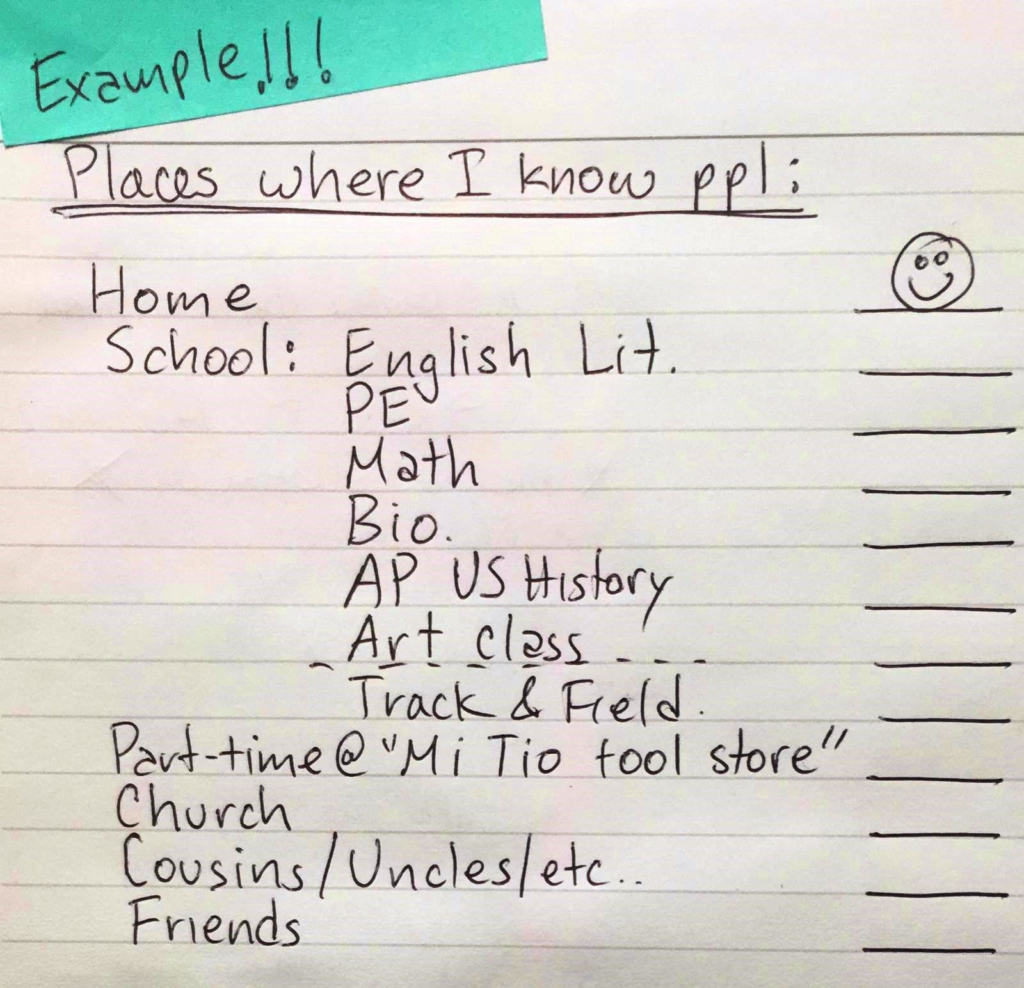 Example!!!
Places where I know ppl:
Home
School: English Lit.
PE
Math
Bio.
AP US History
Art class
Track & Field.
Part-time @ "Mi Tio tool store"
Church
Cousins/Uncles/etc..
Friends